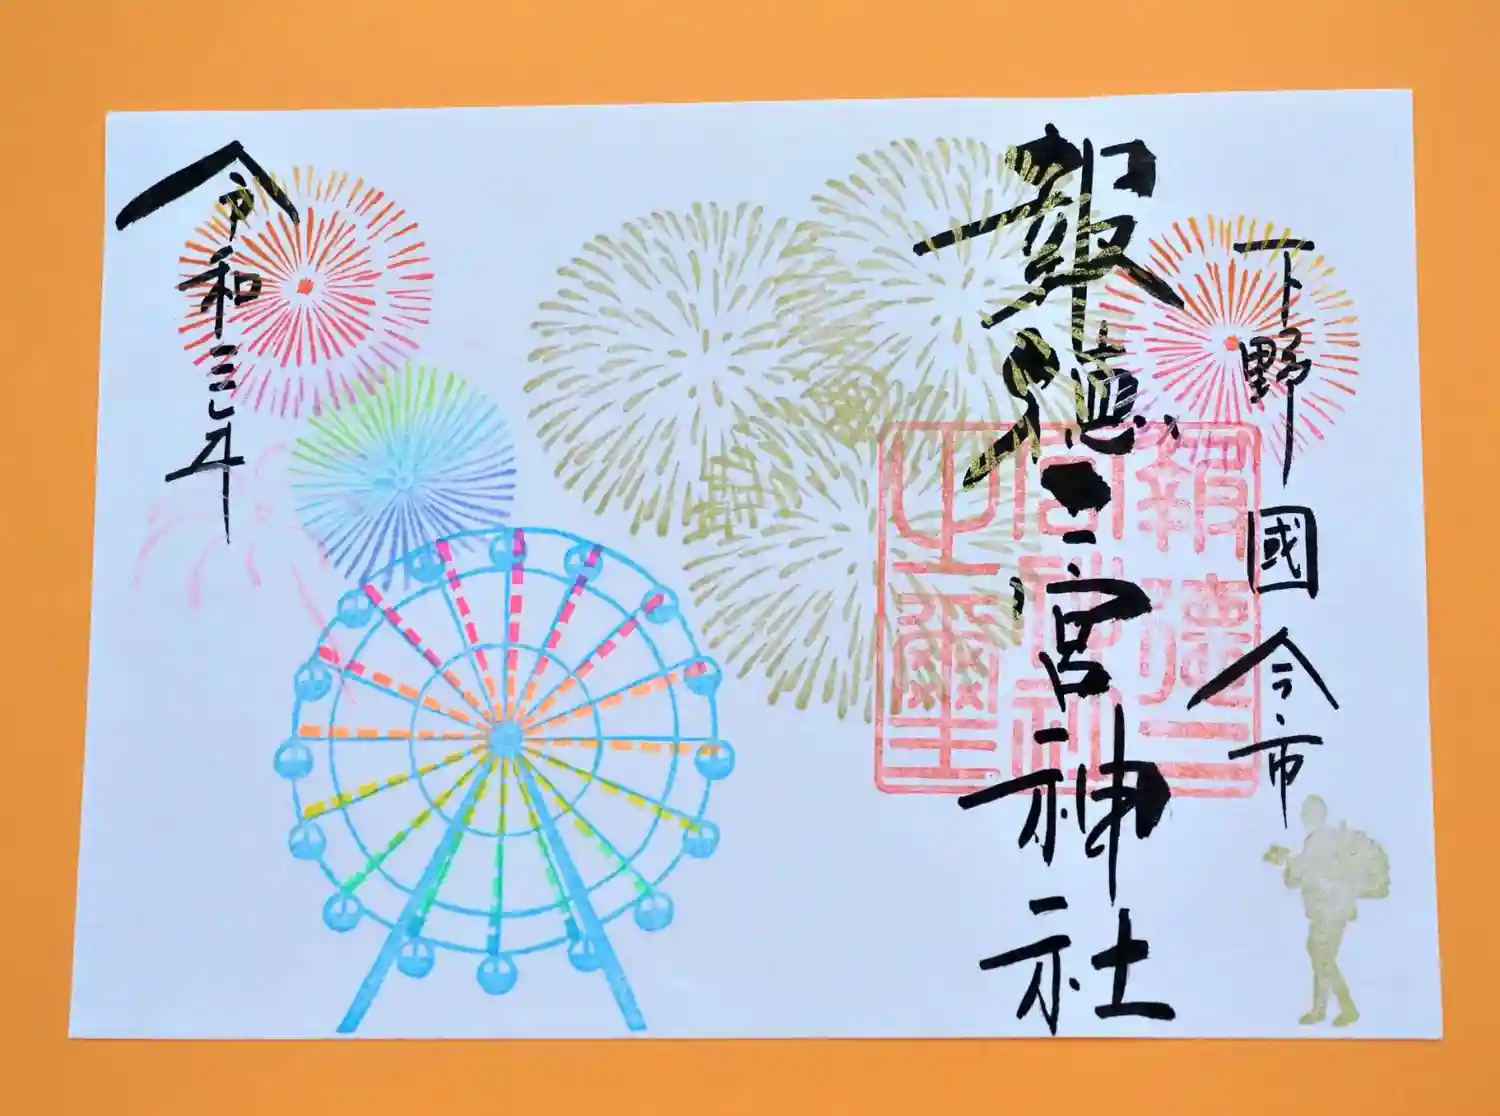 下野國 今市
報徳二宮神社
報徳二
宮神社
之璽
令和三年